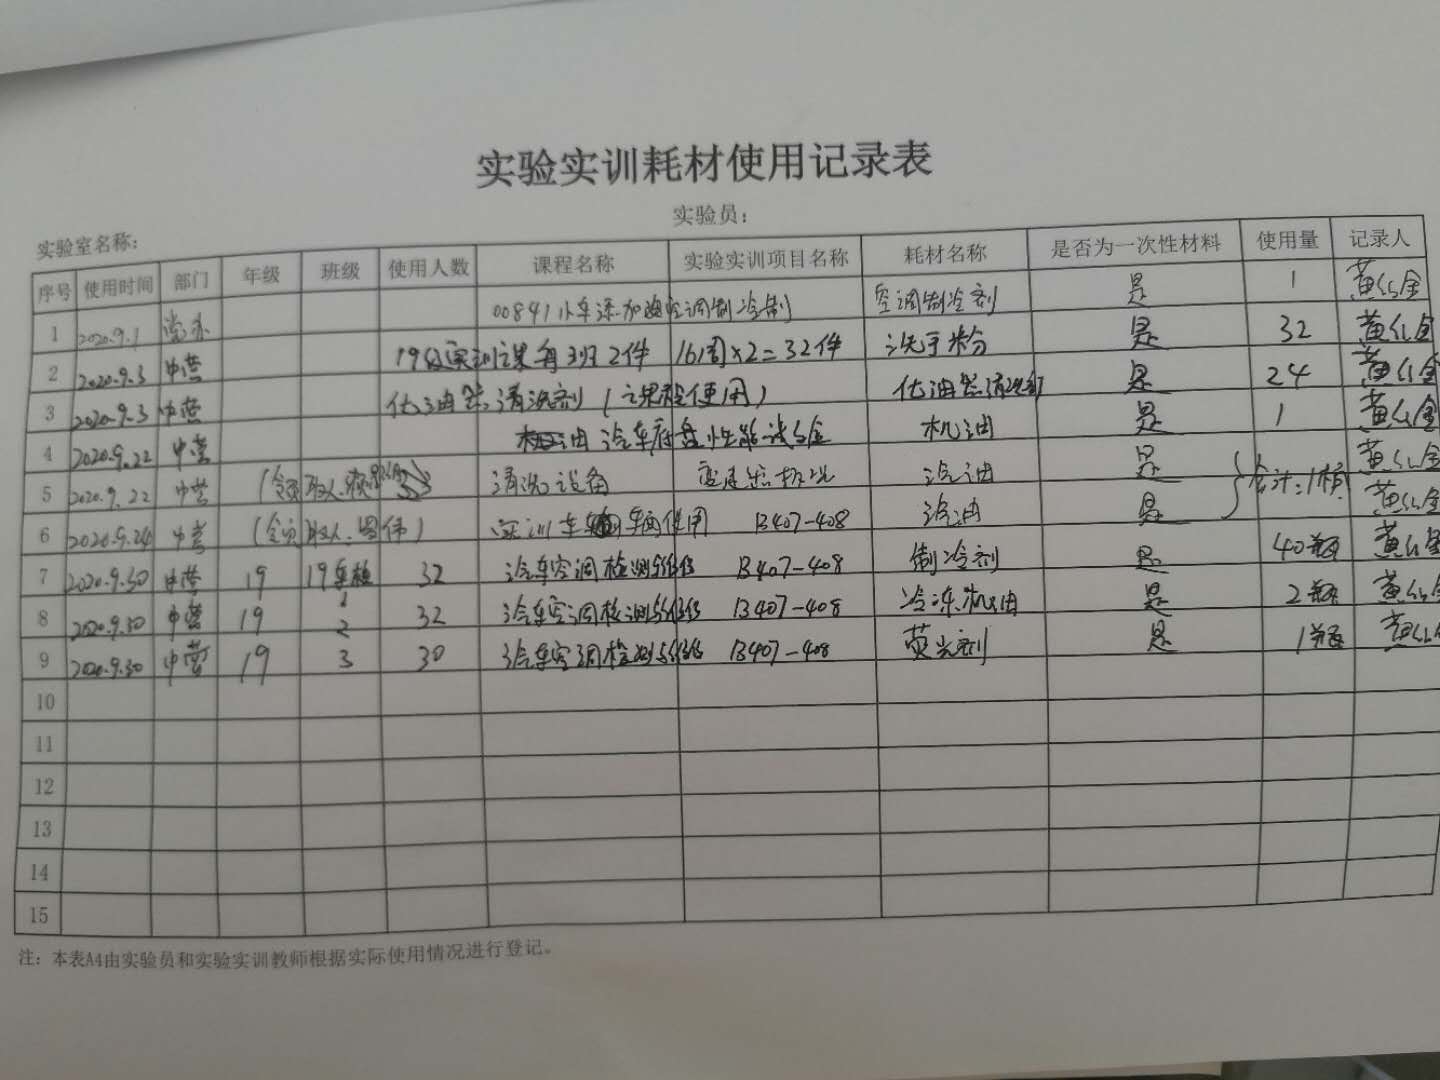 实验实训耗材使用记录表
实验员：
实验室名称：
序号 使用时间 部门 年级 班级 使用人数 课程名称 实验实训项目名称 耗材名称 是否为一次性材料 使用量 记录人
1 2020.9.1 党办 00841小车添加 空调制冷剂 空调制冷剂 是 1 黄红金
2 2020.9.3 中营 19级实训课每班2件 16周×2=32件 洗手粉 是 32 黄红金
3 2020.9.3 中营 化油器清洗剂（课程使用） 化油器清洗剂 是 24 黄红金
4 2020.9.22 中营 机油 汽车底盘性能 机油 是 1 黄红金
5 2020.9.22 中营 （领取人 清洗设备 汽油 是 合计：1桶 黄红金
6 2020.9.24 中营 （领取人 实训车辆使用 B407-408 汽油 是 黄红金
7 2020.9.30 中营 19 19车检1 32 汽车空调检测与维修 B407-408 制冷剂 是 40瓶 黄红金
8 2020.9.30 中营 19 2 32 汽车空调检测与维修 B407-408 冷冻机油 是 2瓶 黄红金
9 2020.9.30 中营 19 3 30 汽车空调检测与维修 B407-408 荧光剂 是 1瓶 黄红金
10
11
12
13
14
15
注：本表A4由实验员和实验实训教师根据实际使用情况进行登记。